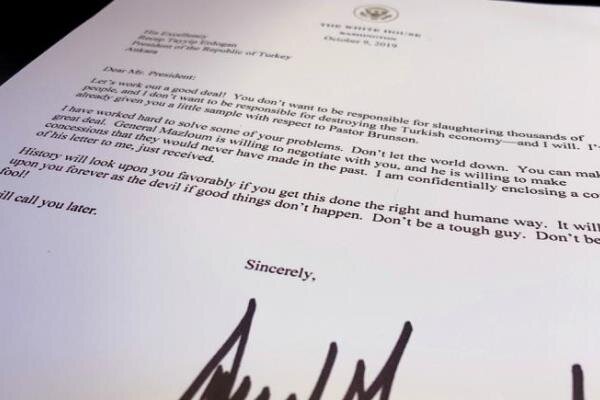 THE WHITE HOUSE
WASHINGTON
October 9, 2019
His Excellency
Recep Tayyip Erdogan
President of the Republic of Turkey
Ankara
Dear Mr. President:
Let's work out a good deal! You don't want to be responsible for slaughtering thousands of
people, and I don't want to be responsible for destroying the Turkish economy—and I will. I'
already given you a little sample with respect to Pastor Brunson.
I have worked hard to solve some of your problems. Don't let the world down. You can mak
great deal. General Mazloum is willing to negotiate with you, and he is willing to make
concessions that they would never have made in the past. I am confidentially enclosing a co
of his letter to me, just received.
History will look upon you favorably if you get this done the right and humane way. It will
upon you forever as the devil if good things don't happen. Don't be a tough guy. Don't be
fool!
ill call you later.
Sincerely,